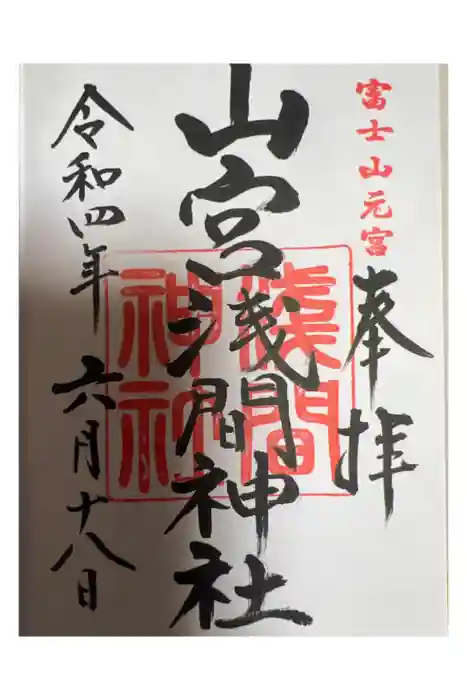 富士山元宮
奉拝
山宮浅間神社
浅間
神社
令和四年 六月十八日